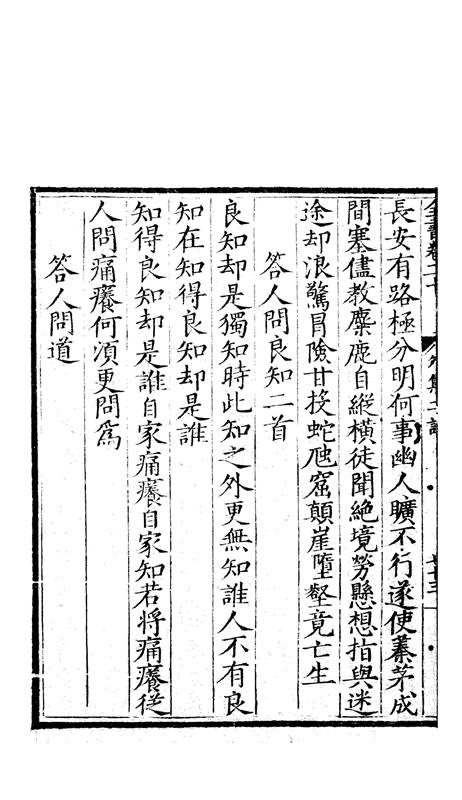 長安有路極分明何事幽人曠不行遂使蓁茅成
間塞儘教麋鹿自縱橫徒聞絶境勞懸想指與迷
途却浪驚冐險甘投蛇虺窟顛崖墮壑竟亡生
答人問良知二首
良知却是獨知時此知之外更無知誰人不有良
知在知得良知却是誰
知得良知却是誰自家痛癢自家知若將痛癢從
人問痛癢何須更問爲
答人問道